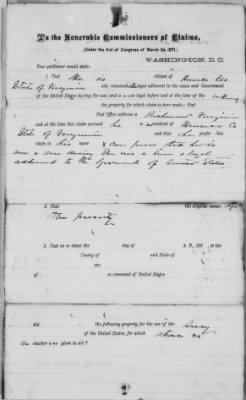 To the Honorable Commissioners of Claims,
(Under the Act of Congress of March 3d, 1871.)
WASHINGTON, D.C.
Your petitioner would state:
1. That he is citizen of Henrico Co
State of Virginia who remained loyal adherent to the cause and Government
of the United States during the war, and was so loyal before and at the time of the taking
the property for which claim is here made; that
Post Office address is Richmond Virginia
and at the time this claim accrued he a resident of Henrico Co
State of Virginia and that he prefer this
claim in his name & can prove that he is
adherent to the Government of United States
2. That the original owner of
the property
3. That on or about the day of A. D., 186 , in the
County of and State of
one
of in command of United States
did the following property for the use of the Army
of the United States, for which
Was voucher or note given to all?